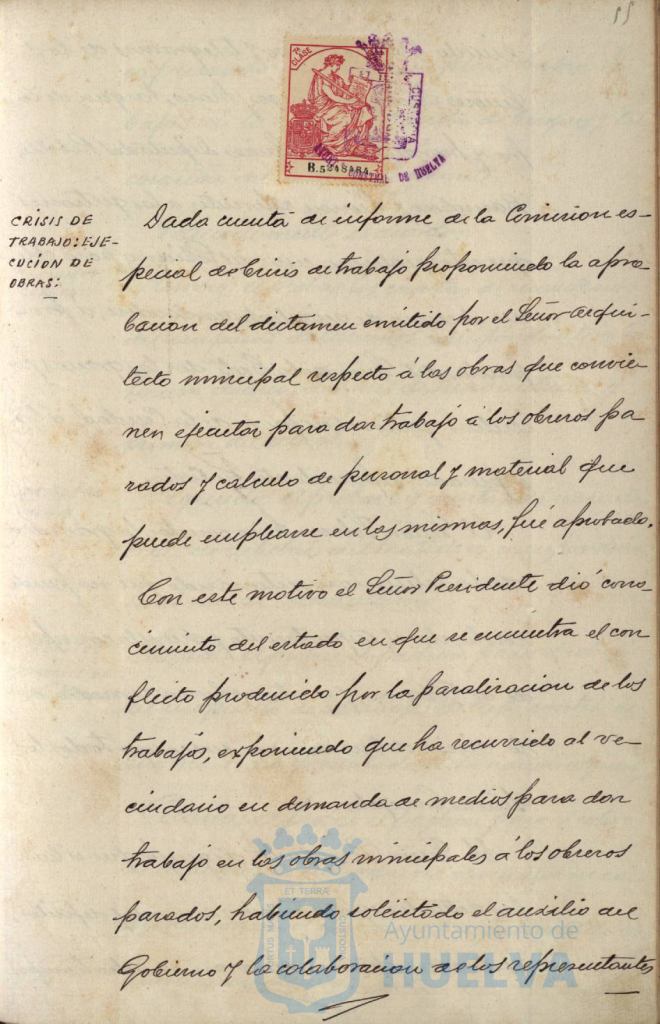 55
7ª CLASE
B.5248484
ADUANA PRINCIPAL DE HUELVA
CRISIS DE
TRABAJO: EJE-
CUCION DE
OBRAS:
Dada cuenta de informe de la Comision es-
pecial de Crisis de trabajo proponiendo la apro-
bacion del dictamen emitido por el Señor Arqui-
tecto municipal respecto á las obras que convie-
nen ejecutar para dar trabajo á los obreros pa-
rados y calculo de personal y material que
puede emplearse en las mismas, fué aprobado.
Con este motivo el Señor Presidente dió cono-
cimiento del estado en que se encuentra el con
flicto producido por la paralizacion de los
trabajos, exponiendo que ha recurrido al ve-
cindario en demanda de medios para dar
trabajo en las obras municipales á los obreros
parados, habiendo solicitado el auxilio del
Gobierno y la colaboracion de los representantes
ET TERRÆ
PORTUS MARIS
CUSTODIA
Ayuntamiento de
HUELVA